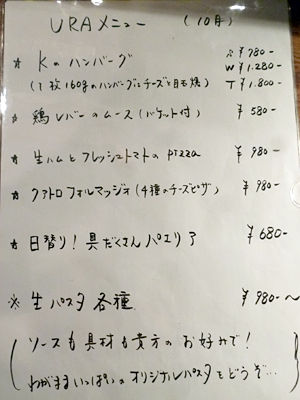 URAメニュー (10月)
☆ Kのハンバーグ ¥780-
W ¥1.280-
(1枚160gのハンバーグにチーズと目玉焼) T ¥1.800-
☆ 鶏レバーのムース(バケット付) ¥580-
☆ 生ハムとフレッシュトマトのpizza ¥980-
☆ クアトロフォルマッジオ(4種のチーズピザ) ¥980-
☆ 日替り!具だくさんパエリア ¥680-
※ 生パスタ各種 ¥980-〜
(ソースも具材も貴方のお好みで!
わがままいっぱいのオリジナルパスタをどうぞ…)